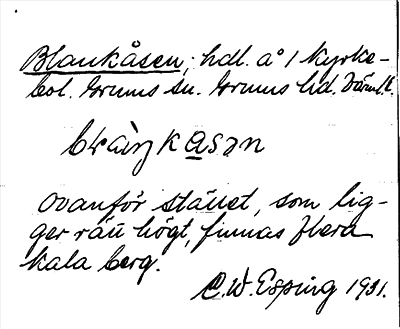 Blankåsen; hdl. a° 1 Kyrke-
bol. Grums sn. Grums hd. Värml.
ovanför stället, som lig-
ger rätt högt, finnas flera
kala berg.
C.W. Esping 1931.